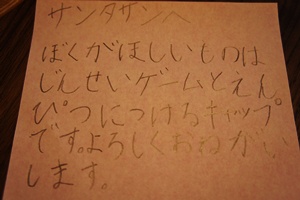 サンタサンへ
ぼくがほしいものは
じんせいゲームとえん
ぴつにつけるキャップ
です。よろしくおねがい
します。